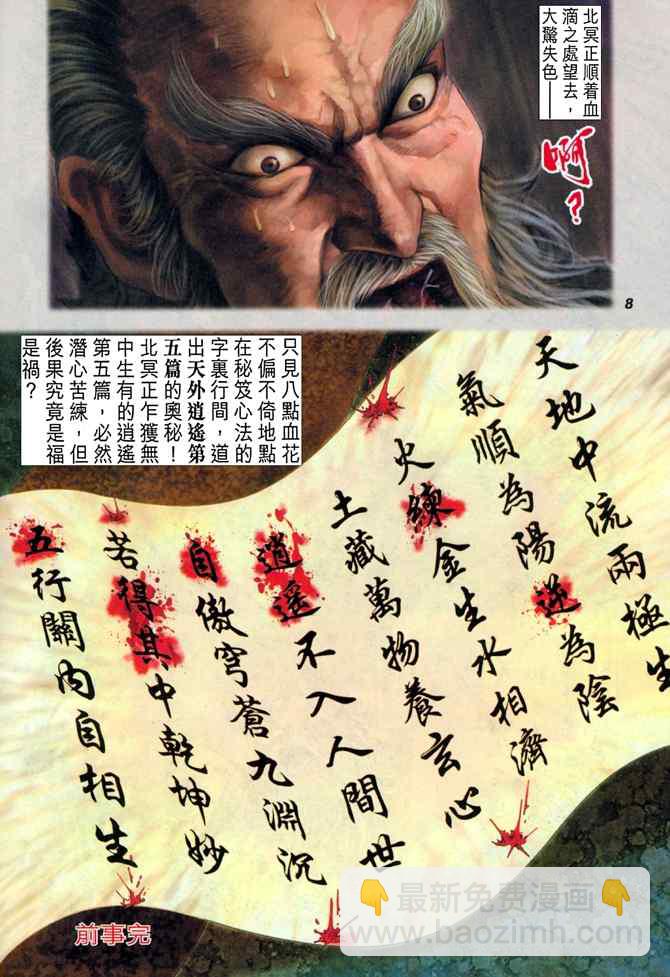 北冥正順着血
滴之處望去，
大驚失色——
啊？
8
只見八點血花
不偏不倚地點
在秘笈心法的
字裏行間，道
出天外逍遙第
五篇的奧秘！
北冥正乍獲無
中生有的逍遙
第五篇，必然
潛心苦練，但
後果究竟是福
是禍？
天地中流兩極生
氣順為陽逆為陰
火練金生水相濟
土藏萬物養玄心
逍遙不入人間世
自傲穹蒼九淵沉
若得其中乾坤妙
五行關內自相生
前事完
👇最新免费漫画👇
www.baozimh.com